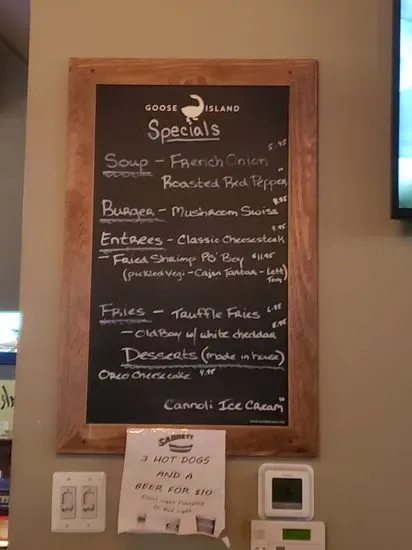 GOOSE ISLAND
Specials
5.95
Soup - French Onion
Roasted Red Pepper "
8.95
Burger - Mushroom Swiss
9.95
Entrees - Classic Cheesesteak
- Fried Shrimp PO' Boy $11.95
(pickled Vegi - Cajun Tartar - Lett
Tom)
Fries - Truffle Fries 6.95
5.95
- Old Bay w/ white cheddar
Desserts (made in house)
Oreo Cheesecake 4.95
Cannoli Ice Cream "
SABRETT
3 HOT DOGS
AND A
BEER FOR $10